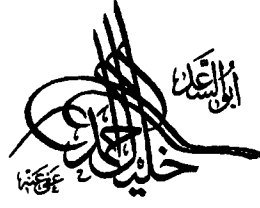 أبو السعد
خليل أحمد
عفی عنہ